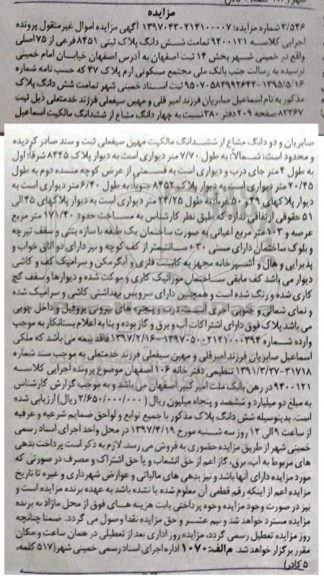 مزایده
۳/۵۴۶ شماره مزایده: ۱۳۹۷۰۴۳۰۲۱۳۱۰۰۰۰۷ آگهی مزایده اموال غیرمنقول پرونده
اجرایی کلاسه ۹۴۰۰۱۲۱ تمامت شش دانگ پلاک ثبتی ۸۴۵۱ فرعی از ۷۵ اصلی
واقع در خمینی شهر بخش ۱۴ ثبت اصفهان به آدرس اصفهان خیابان امام خمینی
نرسیده به رسالت جنب بانک ملی مجتمع مسکونی ارم پلاک ۴۷ که حسب نامه شماره
۹۵۰۷۰۵۸۴۹۹۲۶۴۴-۱۳۹۵/۵/۱۶ ثبت اسناد خمینی شهر تمامت شش دانگ پلاک
مذکور به نام اسماعیل صابریان فرزند امیر قلی و مهین سیفعلی فرزند خدمتعلی ذیل ثبت
۸۲۳۶۷ صفحه ۲۰۹ دفتر ۳۸۰ نسبت به چهار دانگ مشاع از ششدانگ مالکیت اسماعیل
صابریان و دو دانگ مشاع از ششدانگ مالکیت مهین سیفعلی ثبت و سند صادر گردیده
و محدود است: شمالاً: به طول ۷/۷۰ متر دیواری است به دیوار پلاک ۸۴۴۵ شرقاً: اول
به طول ۴ متر جای درب و دیواری است به قسمتی از عرض کوچه منشده دوم به طول
۲۰/۴۵ متر دیواری است به دیوار پلاک ۸۴۵۲ جنوباً: به طول ۶/۴۰ متر دیواری است به
دیوار پلاکهای ۴۹ و ۵۰ غرباً: به طول ۲۴/۲۵ متر دیواری است به دیوار پلاکهای ۴۵ الی
۵۱ حقوق ارتفاقی ندارد که طبق نظر کارشناس به مساحت حدود ۱۷۱/۴۰ متر مربع
عرصه و ۱۰۳ متر مربع اعیانی به صورت ساختمان یک طبقه با سازه بتنی و سقف تیرچه
و بلوک ساختمان دارای مسنی ۳۰ + سانتیمتر از کف کوچه و نیز دارای دو اتاق خواب و
پذیرایی و هال و آشپزخانه مجهز به کابینت فلزی و آبگرمکن و سرامیک کف و کاشی
دیوار می باشد کف مابقی ساختمان موزائیک کاری و موکت شده و دیوارها و سقف گچ
کاری شده و رنگ شده است و همچنین دارای سرویس بهداشتی کاشی و سرامیک شده
و نمای شمالی و جنوبی آجری است درب و پنجره های بیرونی پروفیل و داخل چوبی
می باشد پلاک فوق دارای اشتراکات آب و برق و گاز بوده و بنا به اعلام بستانکار به موجب
وارده شماره ۱۳۹۷۰۵۰۰۲۱۲۱۰۰۰۳۹۴-۱۳۹۷/۲/۱۶ فاقد بیمه می باشد که ملکی
اسماعیل صابریان فرزند امیرقلی و مهین سیفعلی فرزند خدمتعلی به موجب سند شماره
۳۱۷۱۸-۱۳۹۱/۳/۲۷ تنظیمی دفتر خانه ۱۰۶ اصفهان موضوع پرونده اجرایی کلاسه
۹۴۰۰۱۲۱ در رهن بانک ملت امیرکبیر اصفهان می باشد و به موجب گزارش کارشناس
به مبلغ دو میلیارد و ششصد و پنجاه میلیون ریال (۲/۶۵۰/۰۰۰/۰۰۰ ریال) ارزیابی شده
است. بدینوسیله شش دانگ پلاک مذکور با جمیع توابع و لواحق ضمایم شرعیه و عرفیه
از ساعت ۹ الی ۱۲ روز سه شنبه مورخ ۱۳۹۷/۴/۱۹ در محل واحد اجرای اسناد رسمی
خمینی شهر از طریق مزایده حضوری به فروش می رسد. لازم به ذکر است پرداخت بدهی
های مربوط به آب، برق، گاز اعم از حق انشعاب و یا حق اشتراک و مصرف در صورتی که
مورد مزایده دارای آنها باشد و نیز بدهی های مالیاتی و عوارض شهرداری و غیره تا تاریخ
مزایده اعم از اینکه رقم قطعی آن معلوم شده یا نشده باشد به عهده برنده مزایده است و
نیز در صورت وجود مازاد وجوه پرداختی بابت هزینه های فوق از محل مازاد به برنده
مزایده مسترد خواهد شد و نیم عشر و حق مزایده نقدا وصول می گردد. ضمنا چنانچه
روز مزایده تعطیل رسمی گردد، مزایده روز اداری بعد از تعطیلی در همان ساعت و مکان
مقرر برگزار خواهد شد. م الف: ۱۰۷۰ اداره اجرای اسناد رسمی خمینی شهر (۵۱۷ کلمه،
۵ کادر)